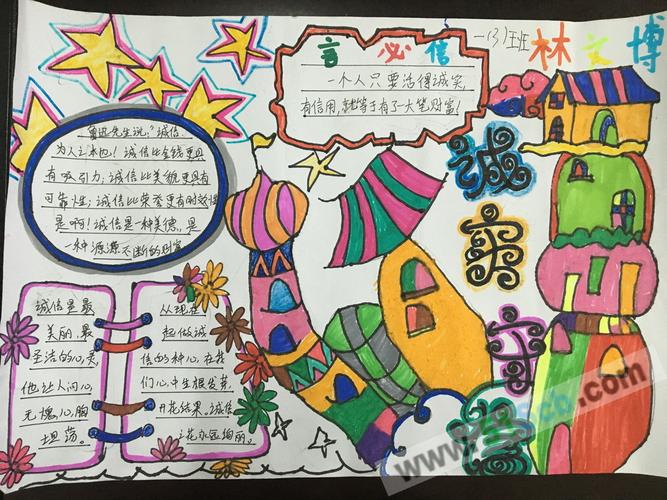 言必信
一(3)班 林文博
一个人只要活得诚实,
有信用,就等于有了一大笔财富!
鲁迅先生说:"诚信
为人之本也!诚信比金钱更具
有吸引力;诚信比美貌更具有
可靠性;诚信比荣誉更有时效性
是啊!诚信是一种美德,是
一种源源不断的财富
诚实守信
诚信是最
美丽,最
圣洁的心灵
他让人问心
无愧,心胸
坦荡。
从现在
起做诚
信的种心,在我
们心中生根发芽
开花结果。诚信
之花永远绚丽。